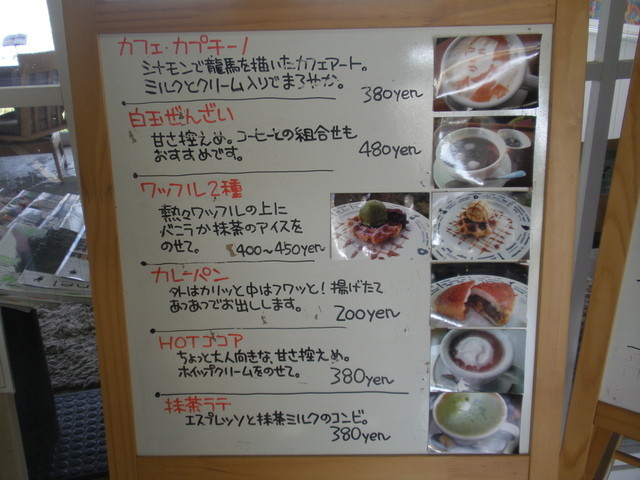 カフェ・カプチーノ
シナモンで龍馬を描いたカフェアート。
ミルクとクリーム入りでまろやか。
380yen
白玉ぜんざい
甘さ控えめ。コーヒーとの組合せも
おすすめです。
480yen
ワッフル2種
熱々ワッフルの上に
バニラか抹茶のアイスを
のせて。
400～450yen
カレーパン
外はカリッと中はフワッと！揚げたて
あつあつでお出しします。
200yen
HOTココア
ちょっと大人向きな、甘さ控えめ。
ホイップクリームをのせて。
380yen
抹茶ラテ
エスプレッソと抹茶ミルクのコンビ。
380yen